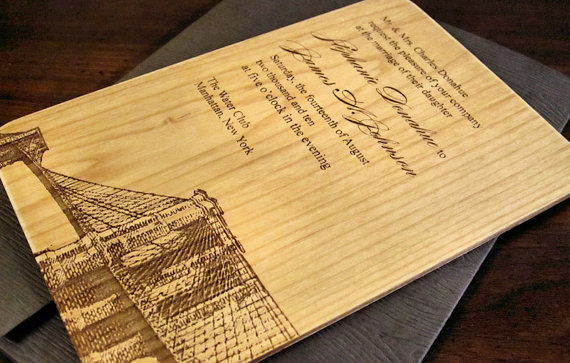 Mr. & Mrs. Charles Donahue
request the pleasure of your company
at the marriage of their daughter
Stephanie Donahue to
Barnes A. Johnson
Saturday, the fourteenth of August
two thousand and ten
at five o'clock in the evening
The Water Club
Manhattan, New York